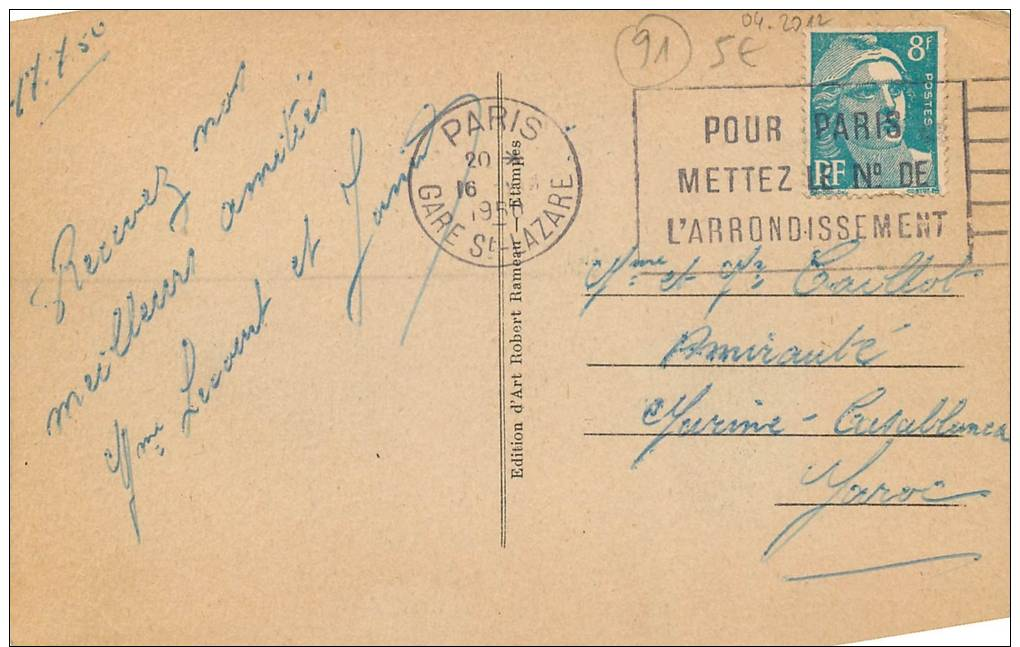 17.7.50
Recevez nos
meilleures amitiés
Mme Lecourt et
04.2012
91
5€
8f
POSTES
RF
PARIS
20 *
16
1950
GARE St-LAZARE
POUR PARIS
METTEZ LE No DE
L'ARRONDISSEMENT
Edition d'Art Robert Rameau — Etampes
Mme et Mr Caillot
Amirauté
Marine - Casablanca
Maroc